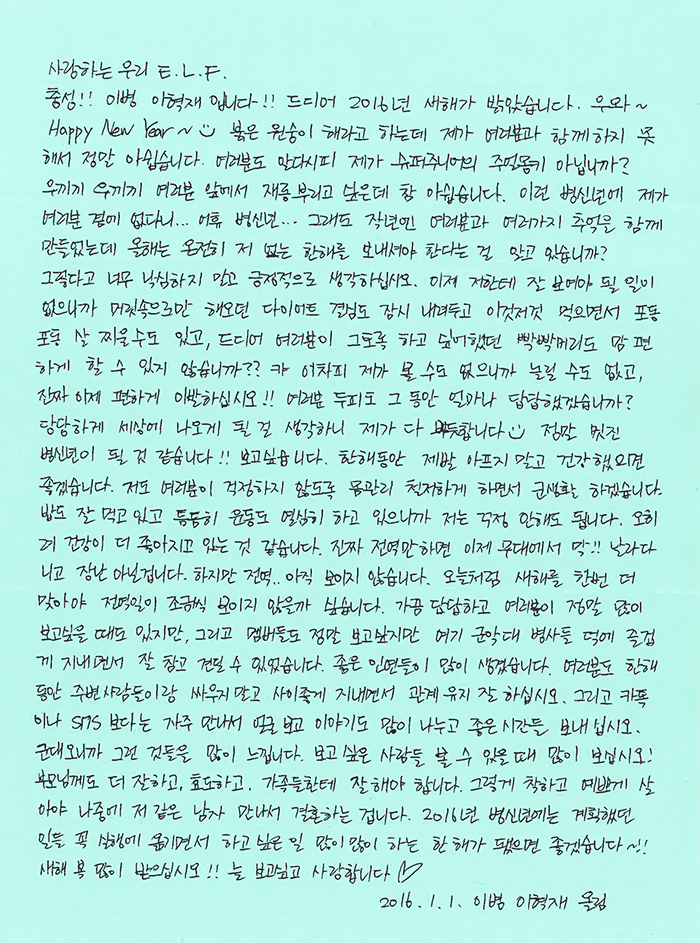 사랑하는 우리 E.L.F.
충성!! 이병 이혁재 입니다!! 드디어 2016년 새해가 밝았습니다. 우와~
Happy New Year~ 붉은 원숭이 해라고 하는데 제가 여러분과 함께하지 못
해서 정말 아쉽습니다. 여러분도 알다시피 제가 슈퍼주니어의 주멍몽키 아닙니까?
우끼끼 우끼끼 여러분 앞에서 재롱부리고 싶은데 참 아쉽습니다. 이런 병신년에 제가
여러분 곁에 없다니... 어휴 병신년... 그래도 작년엔 여러분과 여러가지 추억을 함께
만들었는데 올해는 온전히 저 없는 한해를 보내셔야 한다는 걸 알고 있습니까?
그렇다고 너무 낙심하지 말고 긍정적으로 생각하십시오. 이제 저한테 잘 보여야 될 일이
없으니까 머릿속으로만 해오던 다이어트 결심도 잠시 내려두고 이것저것 먹으면서 포동
포동 살 찌울수도 있고, 드디어 여러분이 그토록 하고 싶어했던 빡빡머리도 맘 편
하게 할 수 있지 않습니까?? 캬 어차피 제가 볼 수도 없으니까 놀릴 수도 없고,
진짜 이제 편하게 이발하십시오!! 여러분 두피도 그동안 얼마나 답답했겠습니까?
당당하게 세상에 나오게 될 걸 생각하니 제가 다 뿌듯합니다 정말 멋진
병신년이 될 것 같습니다!! 보고싶습니다. 한해동안 제발 아프지말고 건강했으면
좋겠습니다. 저도 여러분이 걱정하지 않도록 몸관리 철저하게 하면서 군생활 하겠습니다.
밥도 잘 먹고있고 틈틈히 운동도 열심히 하고 있으니까 저는 걱정 안해도 됩니다. 오히
려 건강이 더 좋아지고 있는 것 같습니다. 진짜 전역만하면 이제 무대에서 막!! 날라다
니고 장난 아닐겁니다. 하지만 전역.. 아직 보이지 않습니다. 오늘처럼 새해를 한번 더
맞아야 전역일이 조금씩 보이지 않을까 싶습니다. 가끔 답답하고 여러분이 정말 많이
보고싶을 때도 있지만, 그리고 멤버들도 정말 보고싶지만 여기 군악대 병사들 덕에 즐겁
게 지내면서 잘 참고 견딜 수 있었습니다. 좋은 인연들이 많이 생겼습니다. 여러분도 한해
동안 주변사람들이랑 싸우지말고 사이좋게 지내면서 관계유지 잘 하십시오. 그리고 카톡
이나 SNS 보다는 자주 만나서 얼굴 보고 이야기도 많이 나누고 좋은시간들 보내십시오.
군대오니까 그런 것들을 많이 느낍니다. 보고 싶은 사람들 볼 수 있을 때 많이 보십시오!
부모님께도 더 잘하고, 효도하고. 가족들한테 잘 해야 합니다. 그렇게 착하고 예쁘게 살
아야 나중에 저 같은 남자 만나서 결혼하는 겁니다. 2016년 병신년에는 계획했던
일들 꼭 실행에 옮기면서 하고 싶은 일 많이많이 하는 한 해가 됐으면 좋겠습니다~!!
새해 복 많이 받으십시오!! 늘 보고싶고 사랑합니다♡
2016.1.1. 이병 이혁재 올림